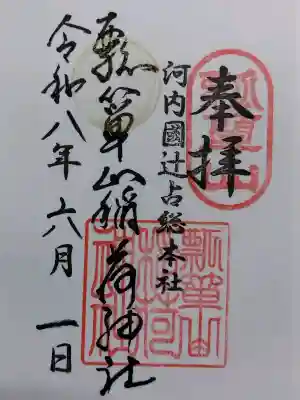 奉拝
瓢箪山
河内國辻占総本社
瓢箪山稲荷神社
令和八年六月一日